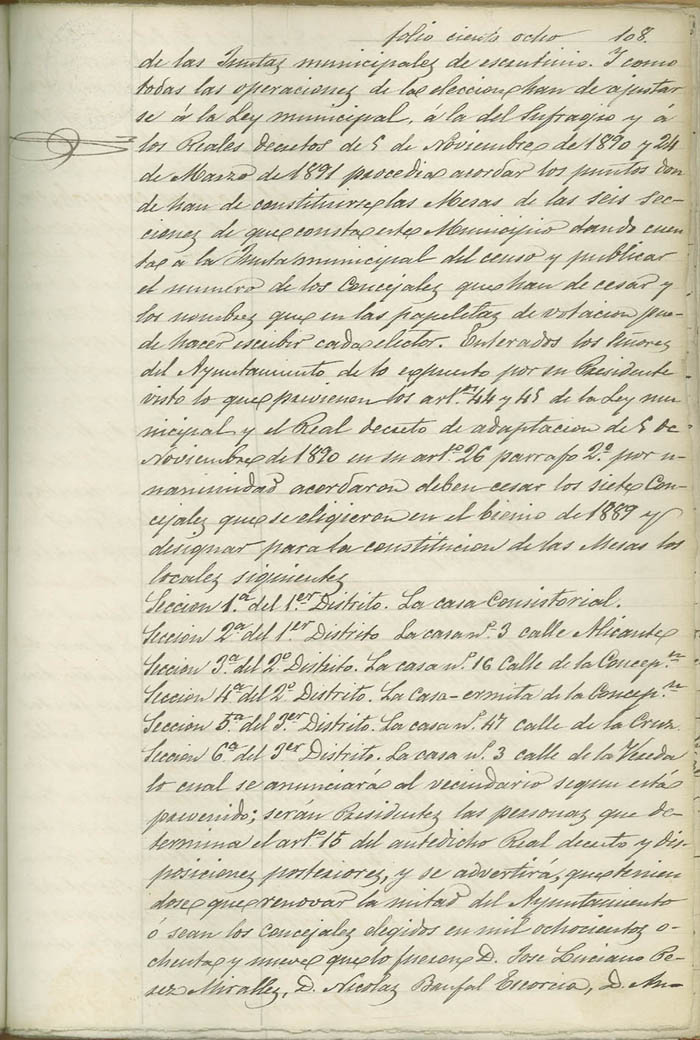 folio ciento ocho 108.
de las Juntas municipales de escrutinio. Y como
todas las operaciones de la eleccion han de ajustar
se á la Ley municipal, á la del Sufragio y á
los Reales decretos de 5 de Noviembre de 1890 y 24
de Marzo de 1891 procedia acordar los puntos don
de han de constituirse las Mesas de las seis sec-
ciones de que consta este Municipio dando cuen
ta á la Junta municipal del censo y publicar
el numero de los Concejales que han de cesar y
los nombres que en las papeletas de votacion pue-
de hacer escribir cada elector. Enterados los Señores
del Ayuntamiento de lo expuesto por su Presidente
visto lo que previenen los art.os 44 y 45 de la Ley mu
nicipal y el Real decreto de adaptacion de 5 de
Noviembre de 1890 en su art.o 26 parrafo 2.o por u-
nanimidad acordaron deben cesar los siete Con-
cejales que se eligieron en el bienio de 1889 y
designar para la constitucion de las Mesas los
locales siguientes
Seccion 1.a del 1.er Distrito. La casa Consistorial.
Seccion 2.a del 1.er Distrito La casa n.o 3 calle Alicante
Seccion 3.a del 2.o Distrito. La casa n.o 16 Calle de la Concep.n
Seccion 4.a del 2.o Distrito. La Casa-ermita de la Concep.n
Seccion 5.a del 3.er Distrito. La casa n.o 47 calle de la Cruz.
Seccion 6.a del 3.er Distrito. La casa n.o 3 calle de la Vereda
lo cual se anunciará al vecindario segun está
prevenido; serán Presidentes las personas que de-
termina el art.o 15 del antedicho Real decreto y dis-
posiciones posteriores, y se advertirá, que tenien
dose que renovar la mitad del Ayuntamiento
ó sean los concejales elegidos en mil ochocientos o-
chenta y nueve que lo fueron D. José Luciano Pe-
rez Miralles, D. Nicolas Banfal Escorcia, D. An-